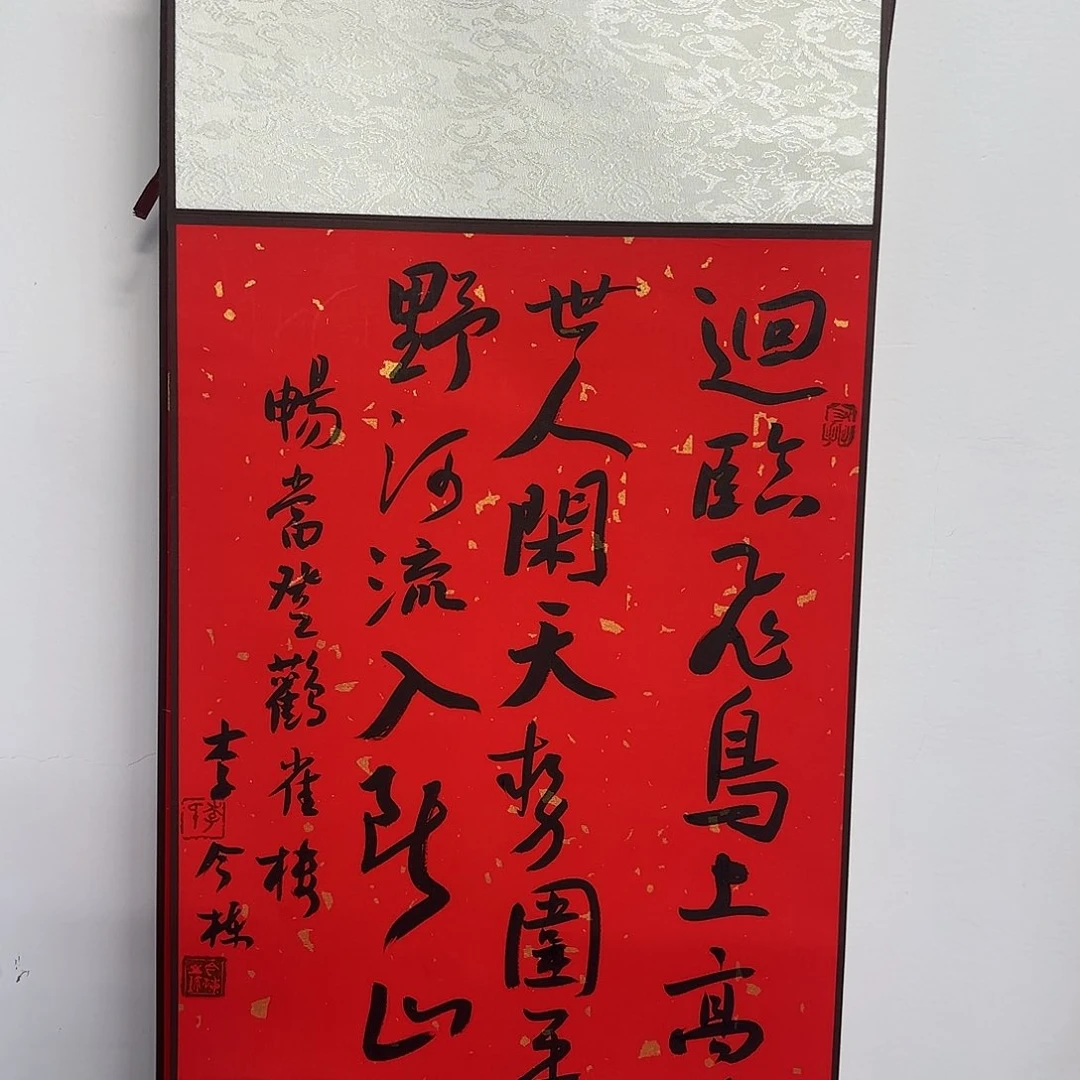 迴臨飛鳥上高
世人閑天勢圍平
野河流入断山
暢當登鸛雀楼
李今栋